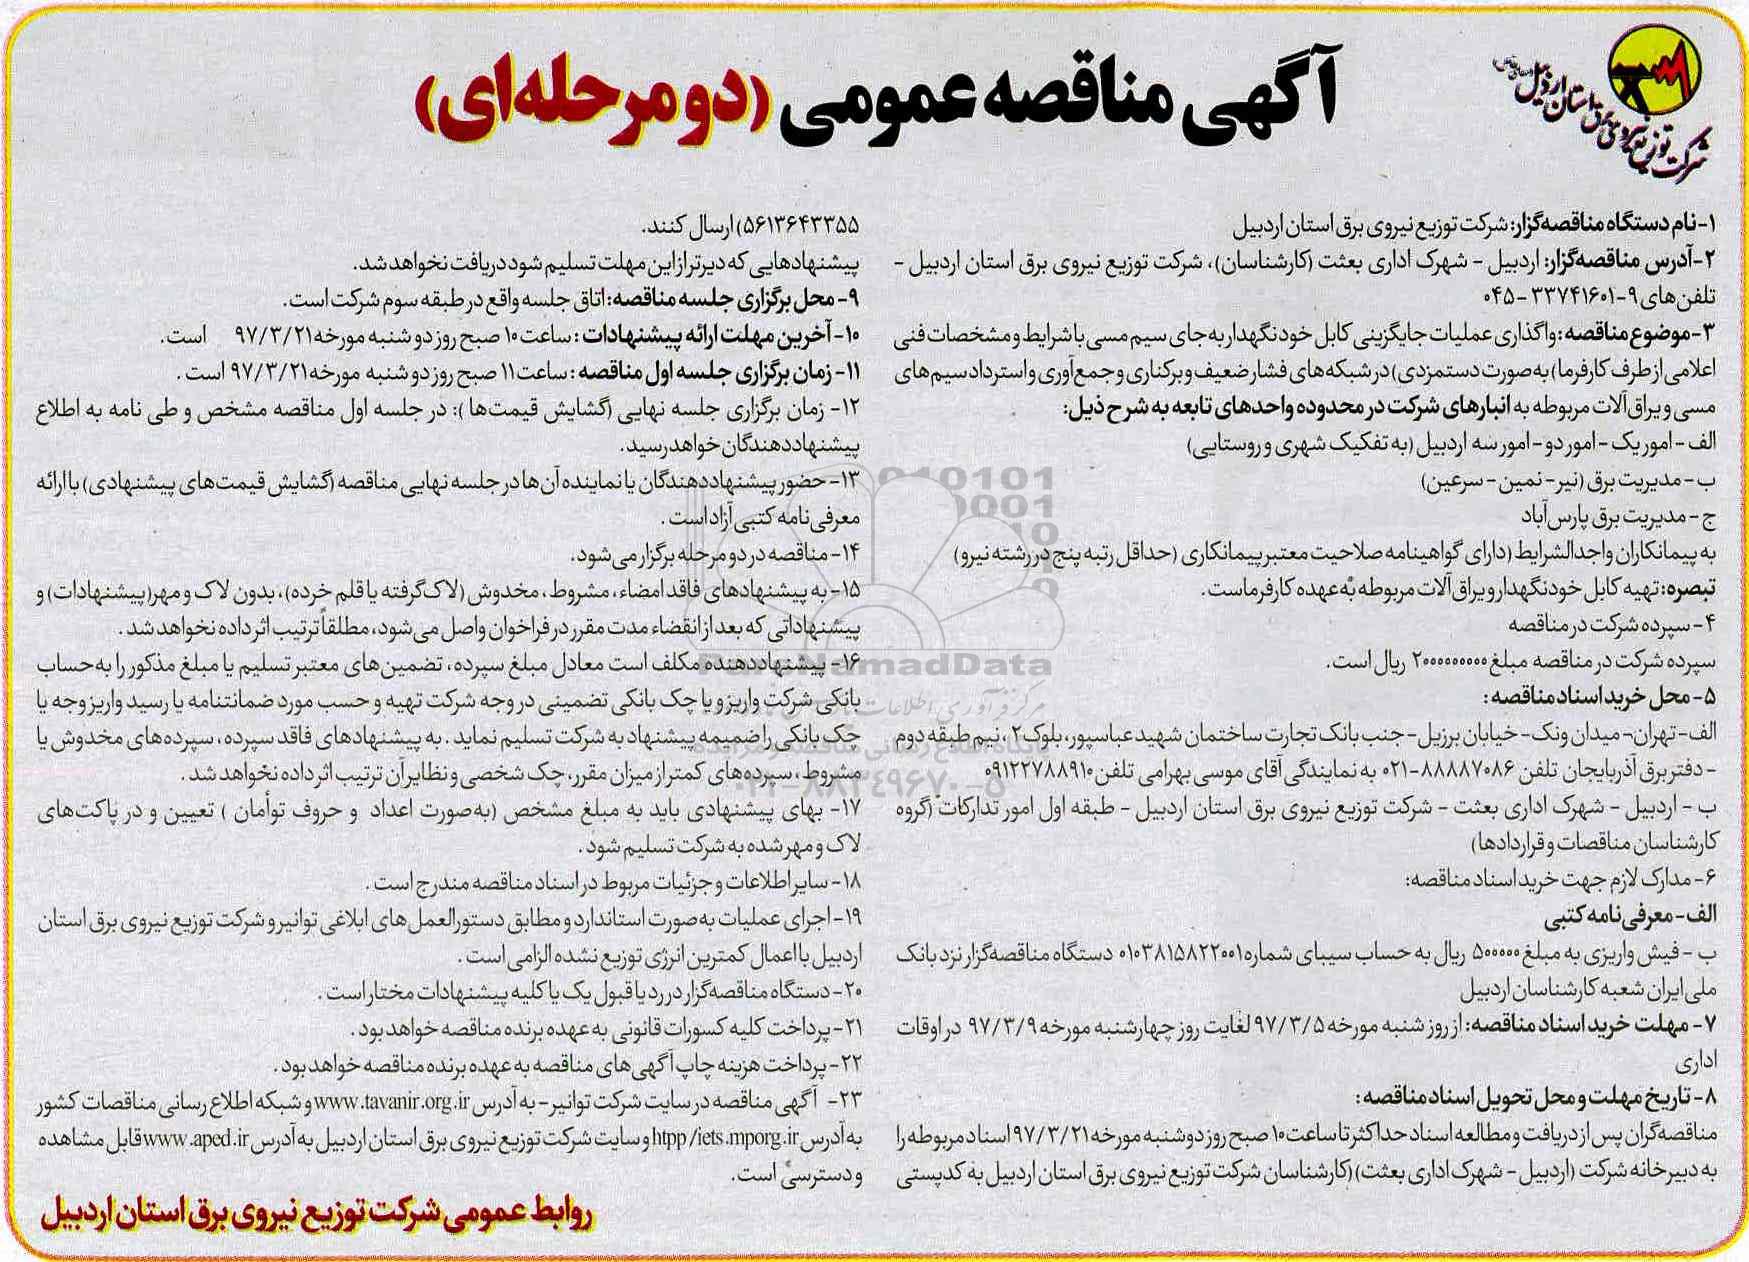 آگهی مناقصه عمومی (دو مرحله‌ای)
شرکت توزیع نیروی برق استان اردبیل
۱- نام دستگاه مناقصه‌گزار: شرکت توزیع نیروی برق استان اردبیل
۲- آدرس مناقصه‌گزار: اردبیل - شهرک اداری بعثت (کارشناسان)، شرکت توزیع نیروی برق استان اردبیل -
تلفن‌های ۹-۳۳۷۴۱۶۰۱ - ۰۴۵
۳- موضوع مناقصه: واگذاری عملیات جایگزینی کابل خودنگهدار به‌جای سیم مسی با شرایط و مشخصات فنی
اعلامی از طرف کارفرما) به‌صورت دستمزدی) در شبکه‌های فشار ضعیف و برکناری و جمع‌آوری و استرداد سیم‌های
مسی و یراق‌آلات مربوطه به انبارهای شرکت در محدوده واحدهای تابعه به شرح ذیل:
الف - امور یک - امور دو - امور سه اردبیل (به تفکیک شهری و روستایی)
ب - مدیریت برق (نیر - نمین - سرعین)
ج - مدیریت برق پارس‌آباد
به پیمانکاران واجدالشرایط (دارای گواهینامه صلاحیت معتبر پیمانکاری (حداقل رتبه پنج در رشته نیرو)
تبصره: تهیه کابل خودنگهدار و یراق‌آلات مربوطه به‌عهده کارفرماست.
۴- سپرده شرکت در مناقصه
سپرده شرکت در مناقصه مبلغ ۲۰۰۰۰۰۰۰۰۰ ریال است.
۵- محل خرید اسناد مناقصه:
الف- تهران- میدان ونک- خیابان برزیل- جنب بانک تجارت ساختمان شهید عباسپور، بلوک ۲، نیم طبقه دوم
- دفتر برق آذربایجان تلفن ۸۸۸۸۷۰۸۶-۰۲۱ به نمایندگی آقای موسی بهرامی تلفن ۰۹۱۲۲۷۸۸۹۱۰
ب - اردبیل - شهرک اداری بعثت - شرکت توزیع نیروی برق استان اردبیل - طبقه اول امور تدارکات (گروه
کارشناسان مناقصات و قراردادها)
۶- مدارک لازم جهت خرید اسناد مناقصه:
الف- معرفی‌نامه کتبی
ب - فیش واریزی به مبلغ ۵۰۰۰۰۰ ریال به حساب سیبای شماره ۰۱۰۳۸۱۵۸۲۲۰۰۱ دستگاه مناقصه‌گزار نزد بانک
ملی ایران شعبه کارشناسان اردبیل
۷- مهلت خرید اسناد مناقصه: از روز شنبه مورخه ۹۷/۳/۵ لغایت روز چهارشنبه مورخه ۹۷/۳/۹ در اوقات
اداری
۸- تاریخ مهلت و محل تحویل اسناد مناقصه:
مناقصه‌گران پس از دریافت و مطالعه اسناد حداکثر تا ساعت ۱۰ صبح روز دوشنبه مورخه ۹۷/۳/۲۱ اسناد مربوطه را
به دبیرخانه شرکت (اردبیل - شهرک اداری بعثت) (کارشناسان شرکت توزیع نیروی برق استان اردبیل به کدپستی
۵۶۱۳۶۴۳۳۵۵) ارسال کنند.
پیشنهادهایی که دیرتر از این مهلت تسلیم شود دریافت نخواهد شد.
۹- محل برگزاری جلسه مناقصه: اتاق جلسه واقع در طبقه سوم شرکت است.
۱۰- آخرین مهلت ارائه پیشنهادات: ساعت ۱۰ صبح روز دوشنبه مورخه ۹۷/۳/۲۱ است.
۱۱- زمان برگزاری جلسه اول مناقصه: ساعت ۱۱ صبح روز دوشنبه مورخه ۹۷/۳/۲۱ است.
۱۲- زمان برگزاری جلسه نهایی (گشایش قیمت‌ها): در جلسه اول مناقصه مشخص و طی نامه به اطلاع
پیشنهاددهندگان خواهد رسید.
۱۳- حضور پیشنهاددهندگان یا نماینده آن‌ها در جلسه نهایی مناقصه (گشایش قیمت‌های پیشنهادی) با ارائه
معرفی‌نامه کتبی آزاد است.
۱۴- مناقصه در دو مرحله برگزار می‌شود.
۱۵- به پیشنهادهای فاقد امضاء، مشروط، مخدوش (لاک‌گرفته یا قلم خرده)، بدون لاک و مهر (پیشنهادات) و
پیشنهاداتی که بعد از انقضاء مدت مقرر در فراخوان واصل می‌شود، مطلقاً ترتیب اثر داده نخواهد شد.
۱۶- پیشنهاددهنده مکلف است معادل مبلغ سپرده، تضمین‌های معتبر تسلیم یا مبلغ مذکور را به‌حساب
بانکی شرکت واریز و یا چک بانکی تضمینی در وجه شرکت تهیه و حسب مورد ضمانتنامه یا رسید واریز وجه یا
چک بانکی را ضمیمه پیشنهاد به شرکت تسلیم نماید. به پیشنهادهای فاقد سپرده، سپرده‌های مخدوش یا
مشروط، سپرده‌های کمتر از میزان مقرر، چک شخصی و نظایر آن ترتیب اثر داده نخواهد شد.
۱۷- بهای پیشنهادی باید به مبلغ مشخص (به‌صورت اعداد و حروف توأمان) تعیین و در پاکت‌های
لاک و مهر شده به شرکت تسلیم شود.
۱۸- سایر اطلاعات و جزئیات مربوط در اسناد مناقصه مندرج است.
۱۹- اجرای عملیات به‌صورت استاندارد و مطابق دستورالعمل‌های ابلاغی توانیر و شرکت توزیع نیروی برق استان
اردبیل با اعمال کمترین انرژی توزیع نشده الزامی است.
۲۰- دستگاه مناقصه‌گزار در رد یا قبول یک یا کلیه پیشنهادات مختار است.
۲۱- پرداخت کلیه کسورات قانونی به عهده برنده مناقصه خواهد بود.
۲۲- پرداخت هزینه چاپ آگهی‌های مناقصه به عهده برنده مناقصه خواهد بود.
۲۳- آگهی مناقصه در سایت شرکت توانیر- به آدرس www.tavanir.org.ir و شبکه اطلاع رسانی مناقصات کشور
به آدرس htpp/iets.mporg.ir و سایت شرکت توزیع نیروی برق استان اردبیل به آدرس www.aped.ir قابل مشاهده
و دسترسی است.
روابط عمومی شرکت توزیع نیروی برق استان اردبیل
ParsNamadData
۰۲۱-۸۸۳۴۹۶۷۰-۵